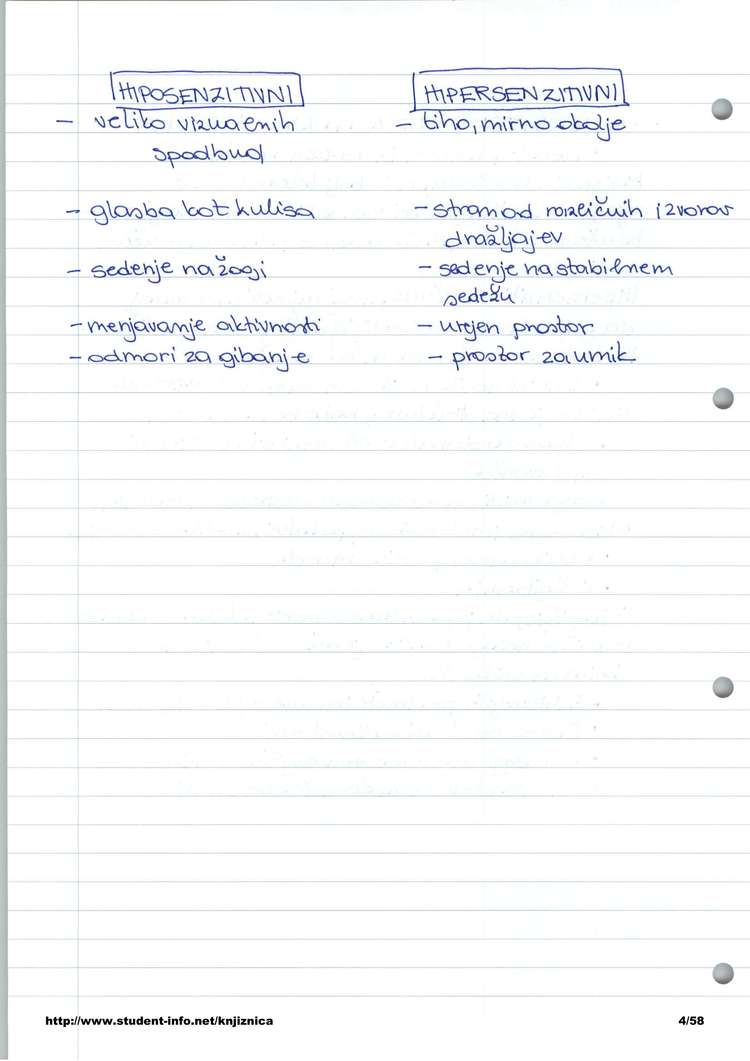 HIPOSENZITIVNI
- veliko vizualnih
spodbud
- glasba kot kulisa
- sedenje na žogi
- menjavanje aktivnosti
- odmori za gibanje
HIPERSENZITIVNI
- tiho, mirno okolje
- stran od različnih izvorov
dražljajev
- sedenje na stabilnem
sedežu
- urejen prostor
- prostor za umik
http://www.student-info.net/knjiznica
4/58